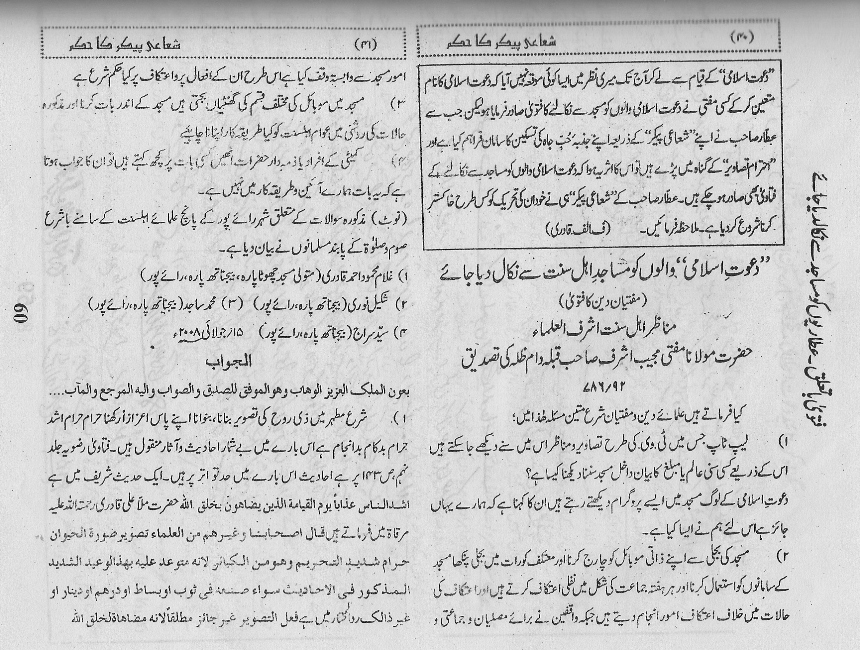 (۴۰) شعاعی پیکر کا حکم
"دعوت اسلامی" کے قیام سے لے کر آج تک میری نظر میں ایسا کوئی موقعہ نہیں آیا کہ دعوت اسلامی کا نام
متعین کر کے کسی مفتی نے دعوت اسلامی والوں کو مسجد سے نکالنے کا فتویٰ صادر فرمایا ہو لیکن جب سے
عطار صاحب نے اپنے "شعاعی پیکر" کے ذریعہ اپنے جذبہ حُبِّ جاہ کی تسکین کا سامان فراہم کیا ہے اور
"احترام تصاویر" کے گناہ میں پڑے ہیں تو اس کا اثر یہ ہوا کہ دعوت اسلامی والوں کو مساجد سے نکالنے کے
فتاویٰ بھی صادر ہو چکے ہیں۔ عطار صاحب کے "شعاعی پیکر" ہی نے خود ان کی تحریک کو کس طرح خاکستر
کرنا شروع کر دیا ہے۔ ملاحظہ فرمائیں۔ (ف الف قادری)
"دعوتِ اسلامی" والوں کو مساجدِ اہل سنت سے نکال دیا جائے
(مفتیان دین کا فتویٰ)
مناظر اہل سنت اشرف العلماء
حضرت مولانا مفتی مجیب اشرف صاحب قبلہ دام ظلہ کی تصدیق
۷۸۶/۹۲
کیا فرماتے ہیں علمائے دین و مفتیان شرع متین مسئلہ ھذا میں؛
۱) لیپ ٹاپ جس میں ٹی۔وی۔ کی طرح تصاویر و مناظر اس میں سنے دیکھے جا سکتے ہیں
اس کے ذریعے کسی سنی عالم یا مبلغ کا بیان داخل مسجد سننا دیکھنا کیسا ہے؟
دعوتِ اسلامی کے لوگ مسجد میں ایسے پروگرام دیکھتے رہتے ہیں ان کا کہنا ہے کہ ہمارے یہاں
جائز ہے اس لئے ہم نے ایسا کیا ہے۔
۲) مسجد کی بجلی سے اپنے ذاتی موبائل کو چارج کرنا اور معتکف کو رات میں بجلی پنکھا مسجد
کے سامانوں کو استعمال کرنا اور ہر ہفتہ جماعت کی شکل میں نفلی اعتکاف کرتے ہیں اور اعتکاف کی
حالات میں خلاف اعتکاف امور انجام دیتے ہیں جبکہ واقفین نے برائے مصلیان و جماعتی و
فتویٰ بالتعلق۔ عطاریوں کو مساجد سے نکال دیا جائے
(۴۱) شعاعی پیکر کا حکم
امور مسجد سے وابستہ وقف کیا ہے اس طرح ان کے افعال پر و اعتکاف پر کیا حکم شرع ہے
۳) مسجد میں موبائل کی مختلف قسم کی گھنٹیاں بجتی ہیں مسجد کے اندر بات کرنا اور مذکورہ
حالات کی روشنی میں عوام اہلسنت کو کیا طریقہ کار اپنانا چاہیئے
۴) کمیٹی کے افراد یا ذمہ دار حضرات انھیں کسی بات پر کچھ کہتے ہیں تو ان کا جواب ہوتا
ہے کہ یہ بات ہمارے آئین و طریقہ کار میں نہیں ہے۔
(نوٹ) مذکورہ سوالات کے متعلق شہر رائے پور کے پانچ علمائے اہلسنت کے سامنے باشرع
صوم و صلوٰۃ کے پابند مسلمانوں نے بیان دیا ہے۔
۱) غلام محمود احمد قادری (متولی مسجد چھوٹا پارہ، بیجناتھ پارہ، رائے پور)
۲) شکیل نوری (بیجناتھ پارہ، رائے پور) (۳) محمد ساجد (بیجناتھ پارہ، رائے پور)
۴) سیّد سراج (بیجناتھ پارہ، رائے پور) ۱۵ر جولائی ۲۰۰۸ء
الجواب
بعون الملک العزیز الوهاب وهو الموفق للصدق والصواب والیه المرجع والمآب....
۱) شرع مطہر میں ذی روح کی تصویر بنانا، بنوانا اپنے پاس اعزازاً رکھنا حرام حرام اشد
حرام بدکام بد انجام ہے اس بارے میں بے شمار احادیث و آثار منقول ہیں۔ فتاویٰ رضویہ جلد
نہم، ص ۱۴۳ پر ہے احادیث اس بارے میں حد تواتر پر ہیں۔ ایک حدیث شریف میں ہے
اشد الناس عذاباً یوم القیامة الذین یضاهون بخلق الله حضرت ملّا علی قادری رحمۃ اللہ علیہ
مرقاۃ میں فرماتے ہیں قال اصحابنا وغیرهم من العلماء تصویر صورة الحیوان
حرام شدید التحریم وهو من الکبائر لانه متوعد علیه بهذا الوعید الشدید
المذکور فی الاحادیث سواء صنعه فی ثوب او بساط او درهم او دینار او
غیر ذالک ردالمختار میں ہے فعل التصویر غیر جائز مطلقاً لانه مضاهاة لخلق الله
60